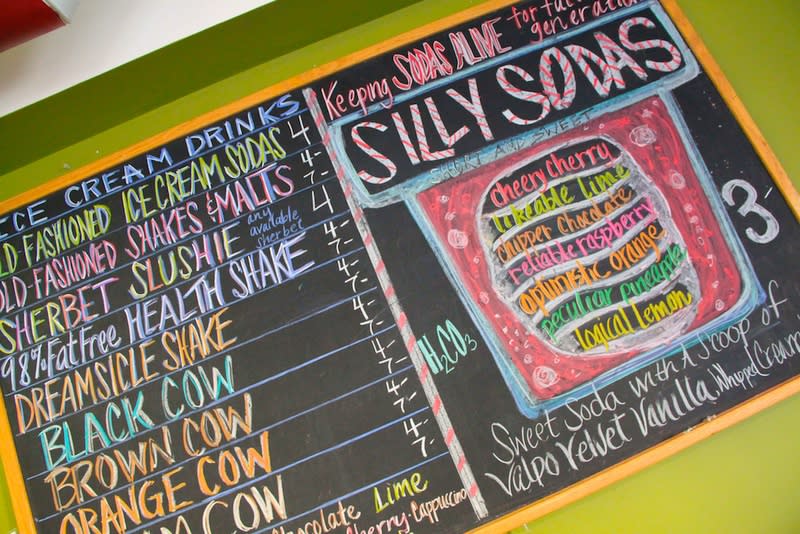 ICE CREAM DRINKS
OLD-FASHIONED ICE CREAM SODAS 4
OLD-FASHIONED SHAKES & MALTS 4-
SHERBET SLUSHIE any available sherbet 4
98% Fat Free HEALTH SHAKE 4-
DREAMSICLE SHAKE 4-
BLACK COW 4-
BROWN COW 4-
ORANGE COW 4-
COW 4-
Chocolate Lime
Cherry - Cappuccino
Keeping SODAS ALIVE for
generation
SILLY SODAS
SHORT AND SWEET
cheery cherry
likeable lime
chipper chocolate
reliable raspberry
optimistic orange
peculiar pineapple
logical lemon
3-
H2CO3
Sweet Soda with a Scoop of
Valpo Velvet Vanilla, Whipped Cream